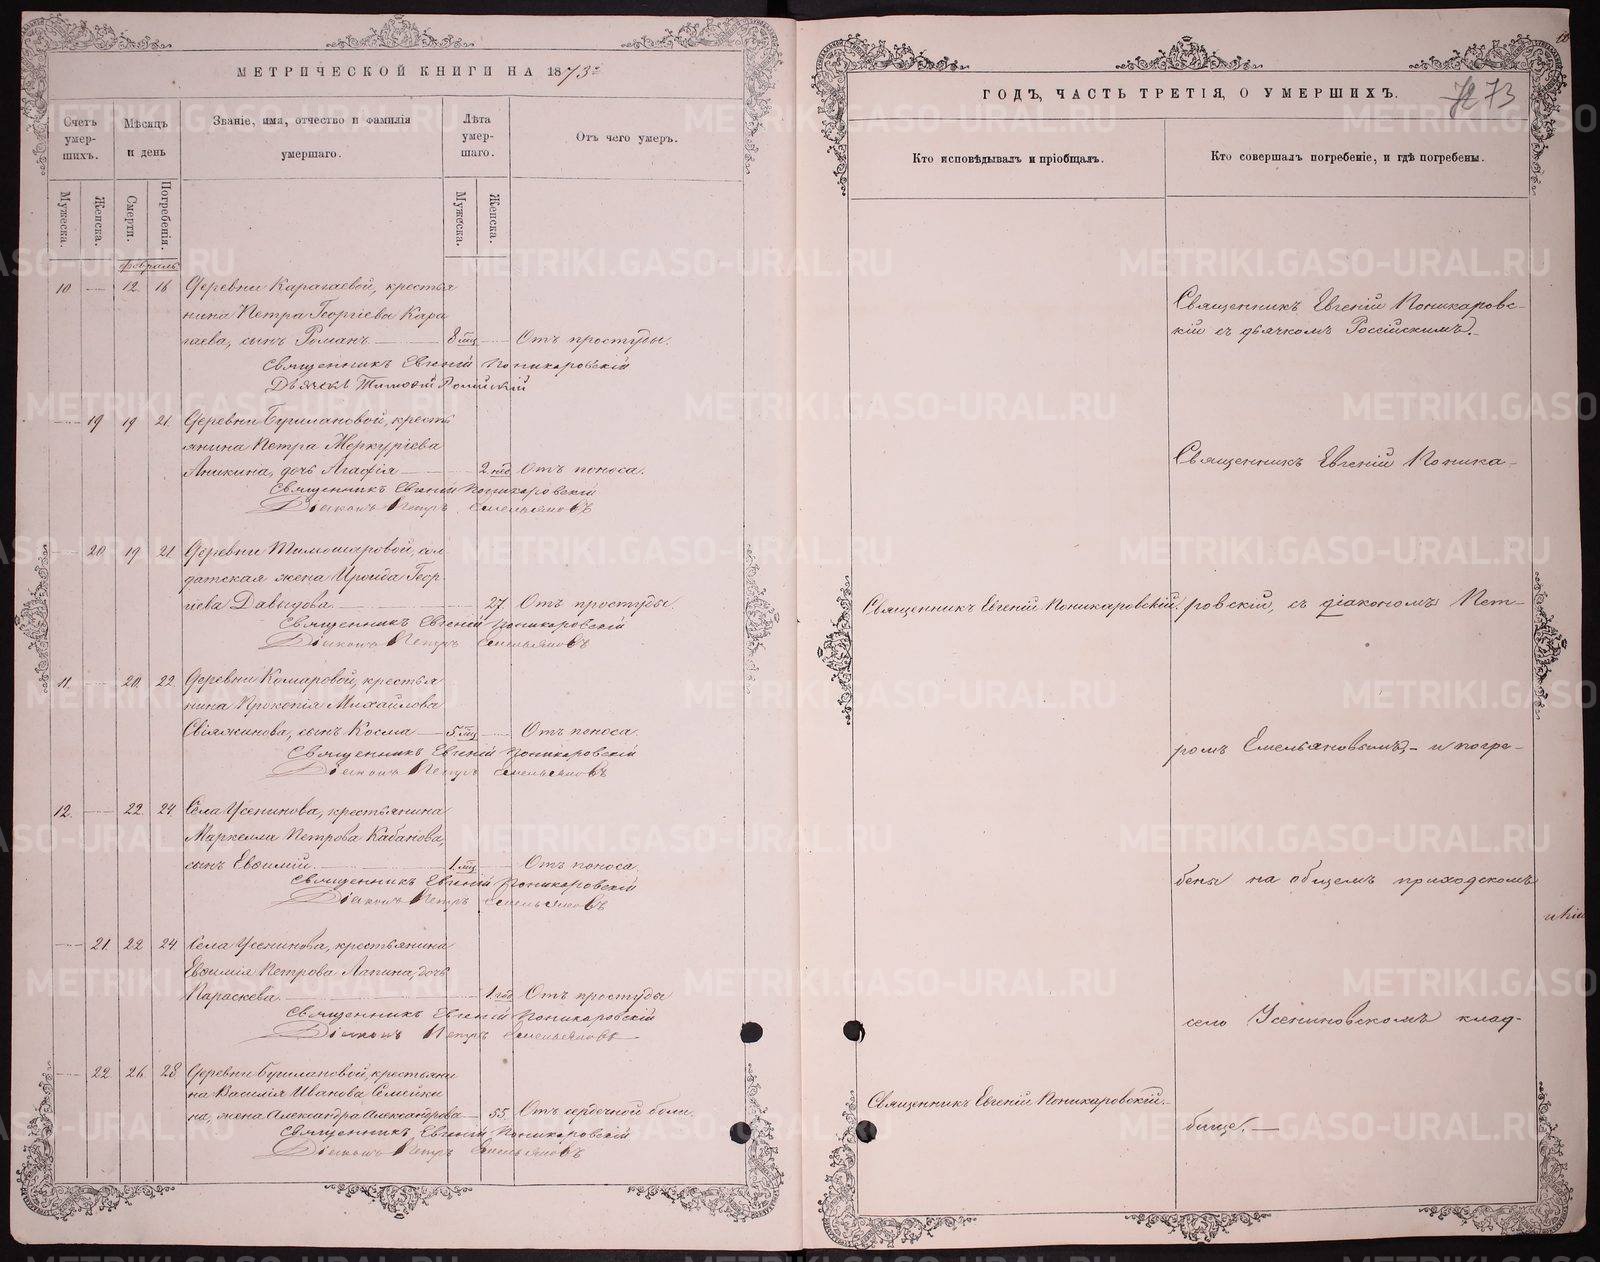 МЕТРИЧЕСКОЙ КНИГИ НА 1873й
Счетъ умер-шихъ.
Мѣсяцъ и день
Званіе, имя, отчество и фамилія умершаго.
Лѣта умер-шаго.
Отъ чего умеръ.
Мужеска.
Женска.
Смерти.
Погребенія.
Мужеска.
Женска.
Февраль
10 12 16 Деревни Карагаевой, крестья
нина Петра Георгіева Кара
гаева, сынъ Романъ 8 мц Отъ простуды.
Священникъ Евгеній Поникаровскій
Дьячекъ Тимофей Россійскій
19 19 21. Деревни Бушлановой, кресть
янина Петра Меркуріева
Аникина, дочь Агафія 2 нед Отъ поноса.
Священникъ Евгеній Поникаровскій
Діаконъ Петръ Емельяновъ
20 19 21. Деревни Тимошаровой, сол-
датская жена Ироида Геор-
гіева Давыдова 27. Отъ простуды.
Священникъ Евгеній Поникаровскій
Діаконъ Петръ Емельяновъ
11. 20. 22. Деревни Комаровой, крестья
нина Прокопія Михайлова
Свіяжинова, сынъ Косма 5 мц Отъ поноса.
Священникъ Евгеній Поникаровскій
Діаконъ Петръ Емельяновъ
12. 22. 24. Села Усенинова, крестьянина
Маркелла Петрова Кабанова,
сынъ Евѳимій. 1. мц Отъ поноса.
Священникъ Евгеній Поникаровскій
Діаконъ Петръ Емельяновъ
21. 22 24. Села Усенинова, крестьянина
Евѳимія Петрова Лапина, дочь
Параскева. 1 год Отъ простуды
Священникъ Евгеній Поникаровскій
Діаконъ Петръ Емельяновъ
22 26 28. Деревни Бушлановой, крестьяни
на Василія Иванова Семейки
на, жена Александра Александрова 55 Отъ сердечной боли.
Священникъ Евгеній Поникаровскій
Діаконъ Петръ Емельяновъ
ГОДЪ, ЧАСТЬ ТРЕТІЯ, О УМЕРШИХЪ.
73
Кто исповѣдывалъ и пріобщалъ.
Кто совершалъ погребеніе, и гдѣ погребены.
Священникъ Евгеній Поникаровс-
кій съ дьячкомъ Россійскимъ.
Священникъ Евгеній Поника-
Священникъ Евгеній Поникаровскій.
ровскій, съ діакономъ Пет-
ромъ Емельяновымъ, и погре-
бены на общемъ приходскомъ
село Усениновскомъ клад-
Священникъ Евгеній Поникаровскій.
бище.
METRIKI.GASO-URAL.RU